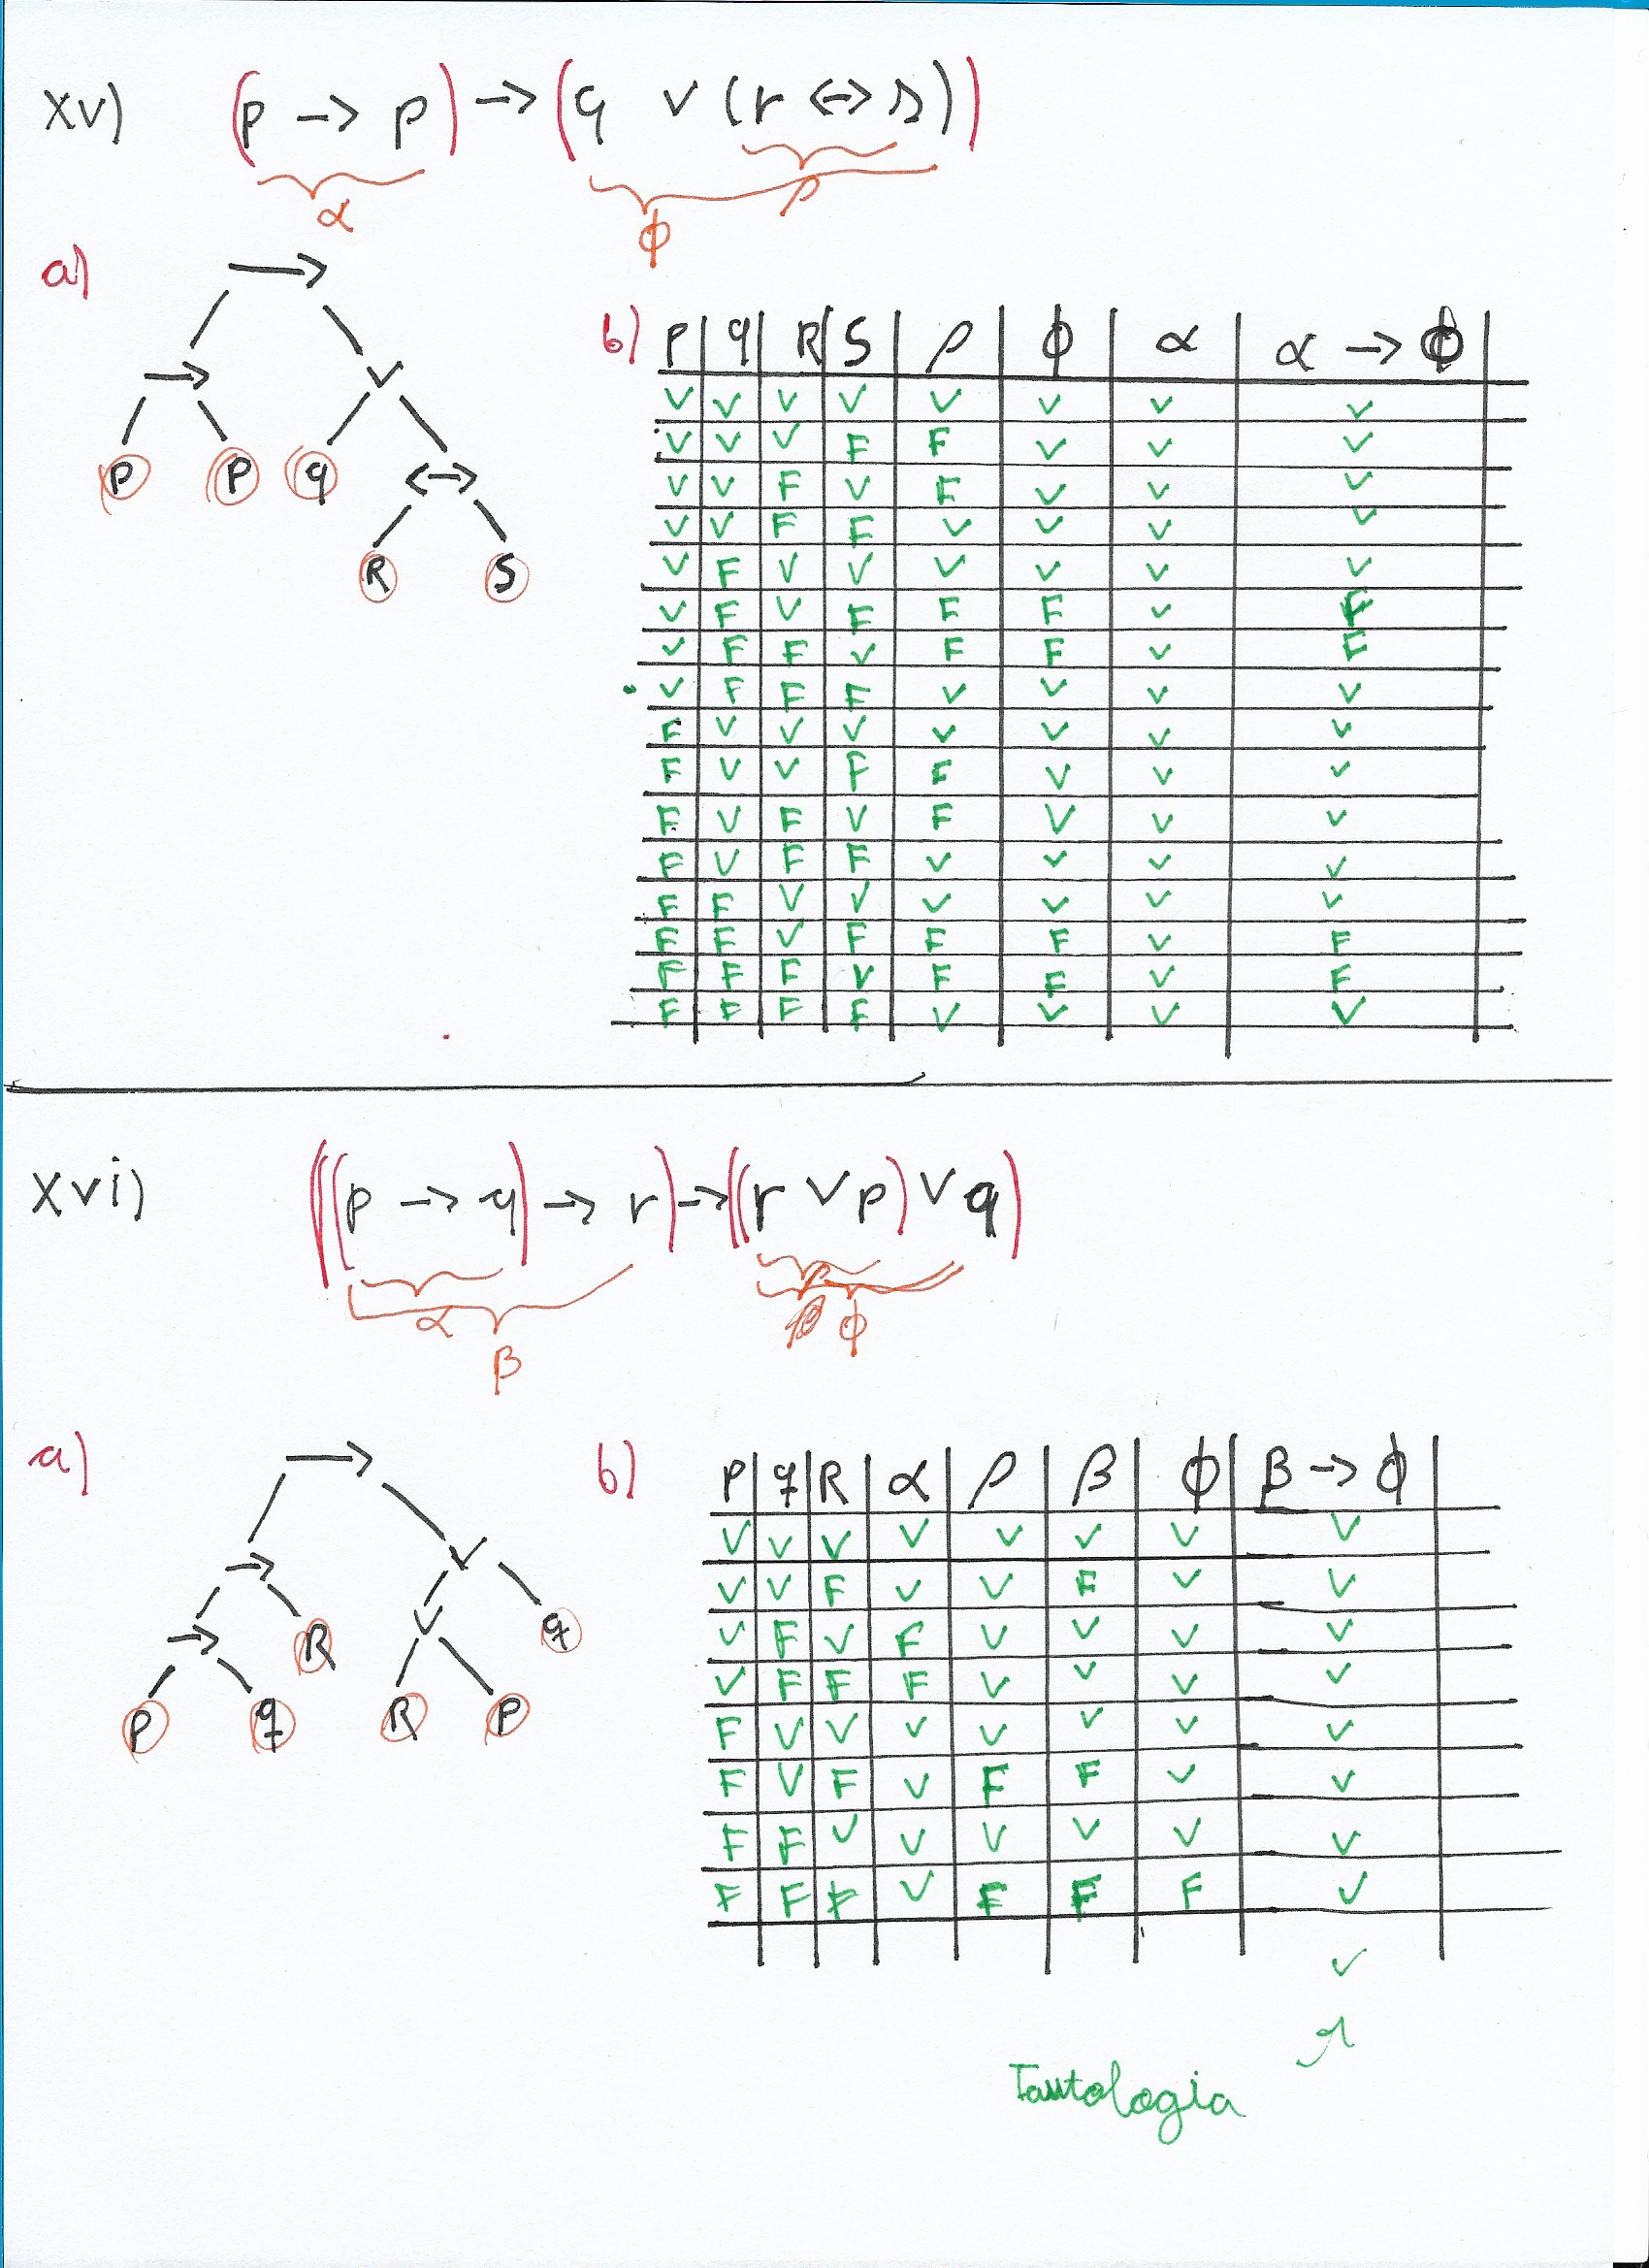 xv) (p → p) → (q ∨ (r ↔ s))
α ρ
ϕ
a) →
→ ∨
P P q ↔
R S
b) P q R S ρ ϕ α α → ϕ
V V V V V V V V
V V V F F V V V
V V F V F V V V
V V F F V V V V
V F V V V V V V
V F V F F F V F
V F F V F F V F
V F F F V V V V
F V V V V V V V
F V V F F V V V
F V F V F V V V
F V F F V V V V
F F V V V V V V
F F V F F F V F
F F F V F F V F
F F F F V V V V
xvi) ((p → q) → r) → ((r ∨ p) ∨ q)
ρ
α ϕ
β
a) →
→ ∨
→ R ∨ q
P q R P
b) P q R α ρ β ϕ β → ϕ
V V V V V V V V
V V F V V F V V
V F V F V V V V
V F F F V V V V
F V V V V V V V
F V F V F F V V
F F V V V V V V
F F F V F F F V
V
Tautologia